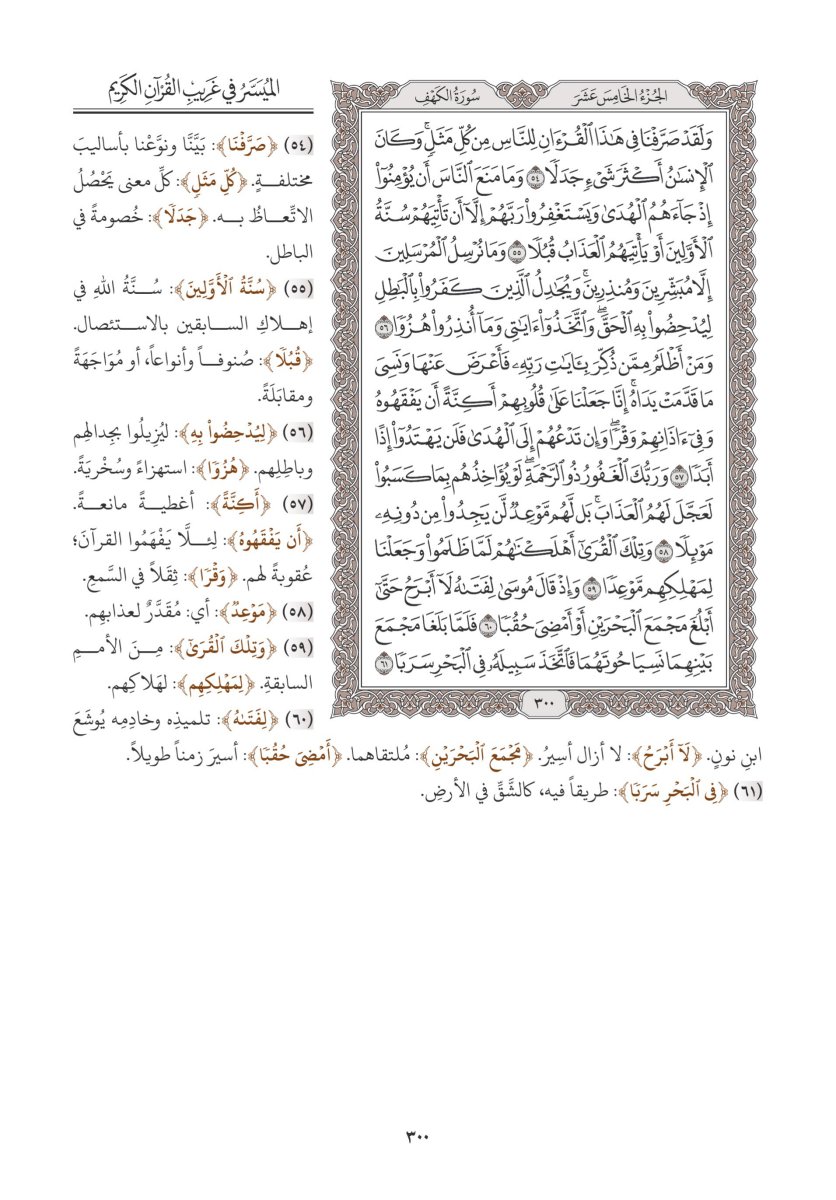 الجُزْءُ الخَامِسَ عَشَرَ
سُورَةُ الكَهْفِ
وَلَقَدْ صَرَّفْنَا فِي هَٰذَا ٱلْقُرْءَانِ لِلنَّاسِ مِن كُلِّ مَثَلٍۚ وَكَانَ
ٱلْإِنسَٰنُ أَكْثَرَ شَىْءٍ جَدَلًا ٥٤ وَمَا مَنَعَ ٱلنَّاسَ أَن يُؤْمِنُوٓا۟
إِذْ جَآءَهُمُ ٱلْهُدَىٰ وَيَسْتَغْفِرُوا۟ رَبَّهُمْ إِلَّآ أَن تَأْتِيَهُمْ سُنَّةُ
ٱلْأَوَّلِينَ أَوْ يَأْتِيَهُمُ ٱلْعَذَابُ قُبُلًا ٥٥ وَمَا نُرْسِلُ ٱلْمُرْسَلِينَ
إِلَّا مُبَشِّرِينَ وَمُنذِرِينَۚ وَيُجَٰدِلُ ٱلَّذِينَ كَفَرُوا۟ بِٱلْبَٰطِلِ
لِيُدْحِضُوا۟ بِهِ ٱلْحَقَّۖ وَٱتَّخَذُوٓا۟ ءَايَٰتِى وَمَآ أُنذِرُوا۟ هُزُوًا ٥٦
وَمَنْ أَظْلَمُ مِمَّن ذُكِّرَ بِـَٔايَٰتِ رَبِّهِۦ فَأَعْرَضَ عَنْهَا وَنَسِىَ
مَا قَدَّمَتْ يَدَاهُۚ إِنَّا جَعَلْنَا عَلَىٰ قُلُوبِهِمْ أَكِنَّةً أَن يَفْقَهُوهُ
وَفِىٓ ءَاذَانِهِمْ وَقْرًاۖ وَإِن تَدْعُهُمْ إِلَى ٱلْهُدَىٰ فَلَن يَهْتَدُوٓا۟ إِذًا
أَبَدًا ٥٧ وَرَبُّكَ ٱلْغَفُورُ ذُو ٱلرَّحْمَةِۖ لَوْ يُؤَاخِذُهُم بِمَا كَسَبُوا۟
لَعَجَّلَ لَهُمُ ٱلْعَذَابَۚ بَل لَّهُم مَّوْعِدٌ لَّن يَجِدُوا۟ مِن دُونِهِۦ
مَوْئِلًا ٥٨ وَتِلْكَ ٱلْقُرَىٰٓ أَهْلَكْنَٰهُمْ لَمَّا ظَلَمُوا۟ وَجَعَلْنَا
لِمَهْلِكِهِم مَّوْعِدًا ٥٩ وَإِذْ قَالَ مُوسَىٰ لِفَتَىٰهُ لَآ أَبْرَحُ حَتَّىٰٓ
أَبْلُغَ مَجْمَعَ ٱلْبَحْرَيْنِ أَوْ أَمْضِىَ حُقُبًا ٦٠ فَلَمَّا بَلَغَا مَجْمَعَ
بَيْنِهِمَا نَسِيَا حُوتَهُمَا فَٱتَّخَذَ سَبِيلَهُۥ فِى ٱلْبَحْرِ سَرَبًا ٦١
٣٠٠
المُيَسَّرُ في غَرِيبِ القُرْآنِ الكَرِيمِ
(٥٤) ﴿صَرَّفْنَا﴾: بَيَّنَّا ونوَّعْنا بأساليبَ
مختلفةٍ. ﴿كُلِّ مَثَلٍ﴾: كلِّ معنى يَحْصُلُ
الاتِّعاظُ به. ﴿جَدَلًا﴾: خُصومةً في
الباطل.
(٥٥) ﴿سُنَّةُ ٱلْأَوَّلِينَ﴾: سُنَّةُ اللهِ في
إهلاكِ السابقين بالاستئصال.
﴿قُبُلًا﴾: صُنوفاً وأنواعاً، أو مُوَاجَهَةً
ومقابَلَةً.
(٥٦) ﴿لِيُدْحِضُوا۟ بِهِ﴾: ليُزِيلُوا بجدالهِم
وباطِلِهم. ﴿هُزُوًا﴾: استهزاءً وسُخْرِيَةً.
(٥٧) ﴿أَكِنَّةً﴾: أغطيةً مانعةً.
﴿أَن يَفْقَهُوهُ﴾: لِئلَّا يَفْهَمُوا القرآنَ؛
عُقوبةً لهم. ﴿وَقْرًا﴾: ثِقَلاً في السَّمعِ.
(٥٨) ﴿مَوْعِدٌ﴾: أي: مُقَدَّرٌ لعذابهِم.
(٥٩) ﴿وَتِلْكَ ٱلْقُرَىٰٓ﴾: مِنَ الأممِ
السابقةِ. ﴿لِمَهْلِكِهِم﴾: لهَلاكِهم.
(٦٠) ﴿لِفَتَىٰهُ﴾: تلميذِه وخادِمِه يُوشَعَ
ابنِ نونٍ. ﴿لَآ أَبْرَحُ﴾: لا أزال أسِيرُ. ﴿مَجْمَعَ ٱلْبَحْرَيْنِ﴾: مُلتقاهما. ﴿أَمْضِىَ حُقُبًا﴾: أسيرَ زمناً طويلاً.
(٦١) ﴿فِى ٱلْبَحْرِ سَرَبًا﴾: طريقاً فيه، كالشَّقِّ في الأرضِ.
٣٠٠